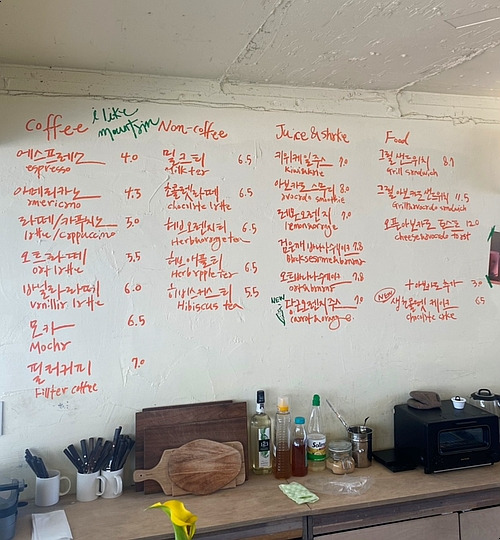 Coffee
에스프레소 4.0
espresso
아메리카노 4.5
americano
라떼/카푸치노 5.0
latte/cappuccino
오트라떼 5.5
oat latte
바닐라라떼 6.0
vanilla latte
모카 6.5
Mocha
필터커피 7.0
Fillter coffee
i like
mountain
Non-coffee
밀크티 6.5
milk tea
초콜렛라떼 6.5
chocolate latte
허브오렌지티 6.5
Herb orange tea
허브애플티 6.5
Herb apple tea
히비스커스티 5.5
Hibiscus tea
Juice & shake
키위케일주스 9.0
Kiwi & kale
아보카도 스무디 8.0
avocado smoothie
레몬오렌지 7.0
lemon orange
검은깨바나나쉐이크 7.8
black sesame banana
오트바나나쉐이크 7.8
oat banana
NEW
당근오렌지주스 7.0
carrot & orange
Food
그릴 샌드위치 8.9
Grill sandwich
그릴아보카도샌드위치 11.5
Grill avocado sandwich
오픈아보카도 토스트 12.0
cheese avocado toast
+ 아보카도 추가 3.0
NEW
초콜릿 케이크 6.5
chocolate cake
Solim